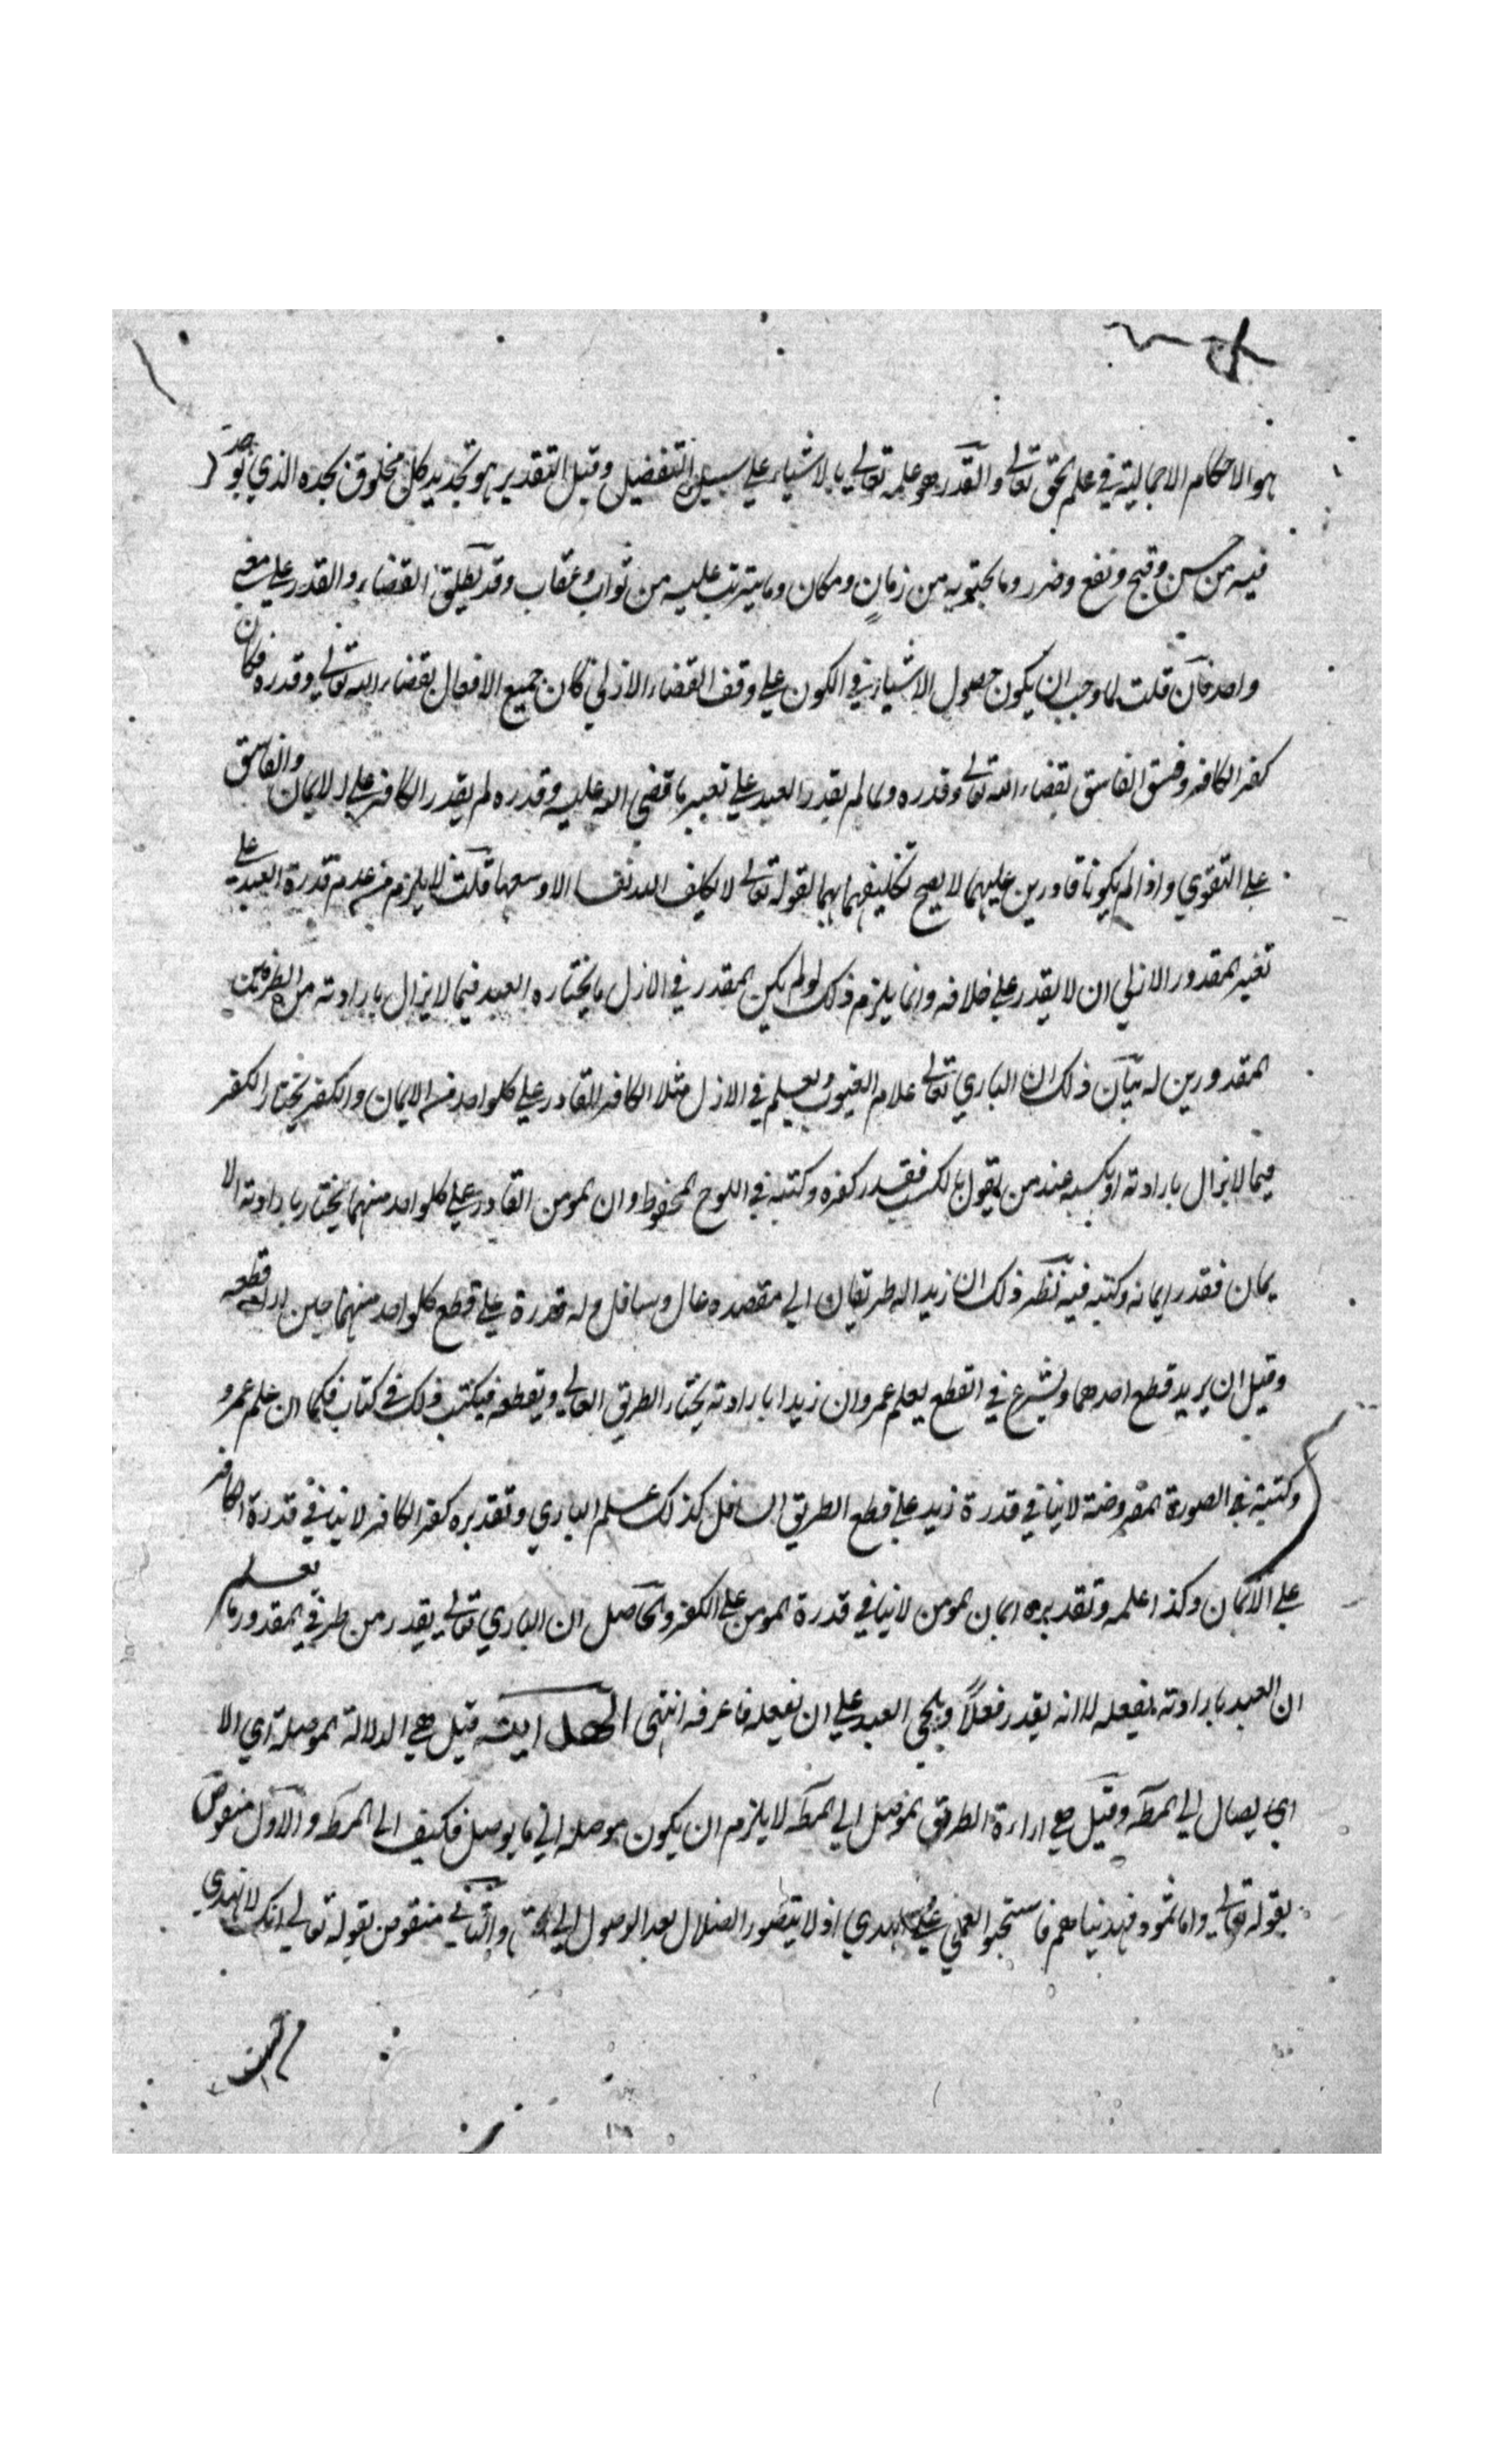 هو الاحكام الاجمالية في علم الحق تعالى والقدر هو علمه تعالى بالاشياء على سبيل التفضيل وقيل التقدير هو تحديد كل مخلوق بحده الذي يوجد
فيه من حسن وقبح ونفع وضرر وما يحتويه من زمان ومكان وما يترتب عليه من ثواب وعقاب وقد يطلق القضاء والقدر على معنى
واحد فان قلت لما وجب ان يكون حصول الاشياء في الكون على وقف القضاء الازلي كان جميع الافعال بقضاء الله تعالى وقدره فكان
كفر الكافر وفسق الفاسق بقضاء الله تعالى وقدره ولما لم يقدر العبد على تغيير ما قضى الله عليه وقدره لم يقدر الكافر على الايمان والفاسق
على التقوي واذا لم يكونا قادرين عليهما لا يصح تكليفهما بهما لقوله تعالى لا يكلف الله نفسا الا وسعها قلت لا يلزم من عدم قدرة العبد على
تغير المقدور الازلي ان لا يقدر على خلافه وانما يلزم ذلك لو لم يكن المقدر في الازل ما يختاره العبد فيما لا يزال بارادته من الطرفين
المقدورين له بيان ذلك ان الباري تعالى علام الغيوب ويعلم في الازل مثلا الكافر القادر على كلواحد من الايمان والكفر يختار الكفر
فيما لا يزال بارادته او بكسبه عند من يقول بالكسب فقدر كفره وكتبه في اللوح المحفوظ وان المومن القادر على كلواحد منهما يختار بارادته الا
يمان فقدر ايمانه وكتبه فيه نظر ذلك ان زيدا له طريقان الى مقصده عال وسافل وله قدرة على قطع كلواحد منهما حين اراد قطعه
وقبل ان يريد قطع احدهما ويشرع في القطع يعلم عمرو ان زيدا بارادته يختار الطريق العالي ويقطعه فيكتب ذلك في كتاب فكما ان علم عمرو
وكتبته في الصورة المفروضة لا ينافي قدرة زيد على قطع الطريق السافل كذلك علم الباري وتقديره كفر الكافر لا ينافي قدرة الكافر
على الايمان وكذا علمه وتقديره ايمان المومن لا ينافي قدرة المومن على الكفر والحاصل ان الباري تعالى يقدر من طرفي المقدور ما يعلم
ان العبد بارادته يفعله لا انه يقدر فعلاً ويلجئ العبد على ان يفعله فاعرفه انتهى الهداية قيل هي الدلالة الموصلة اي الا
اي يصال الى المط وقيل هي اراءة الطريق الموصل الى المط لا يلزم ان يكون موصلا الى ما يوصل فكيف الى المط والاول منقوض
بقوله تعالى واما ثمود فهديناهم فاستحبوا العمى على الهدي اذ لا يتصور الضلال بعد الوصول الى الحق والثاني منقوض بقوله تعالى انك لا تهدي